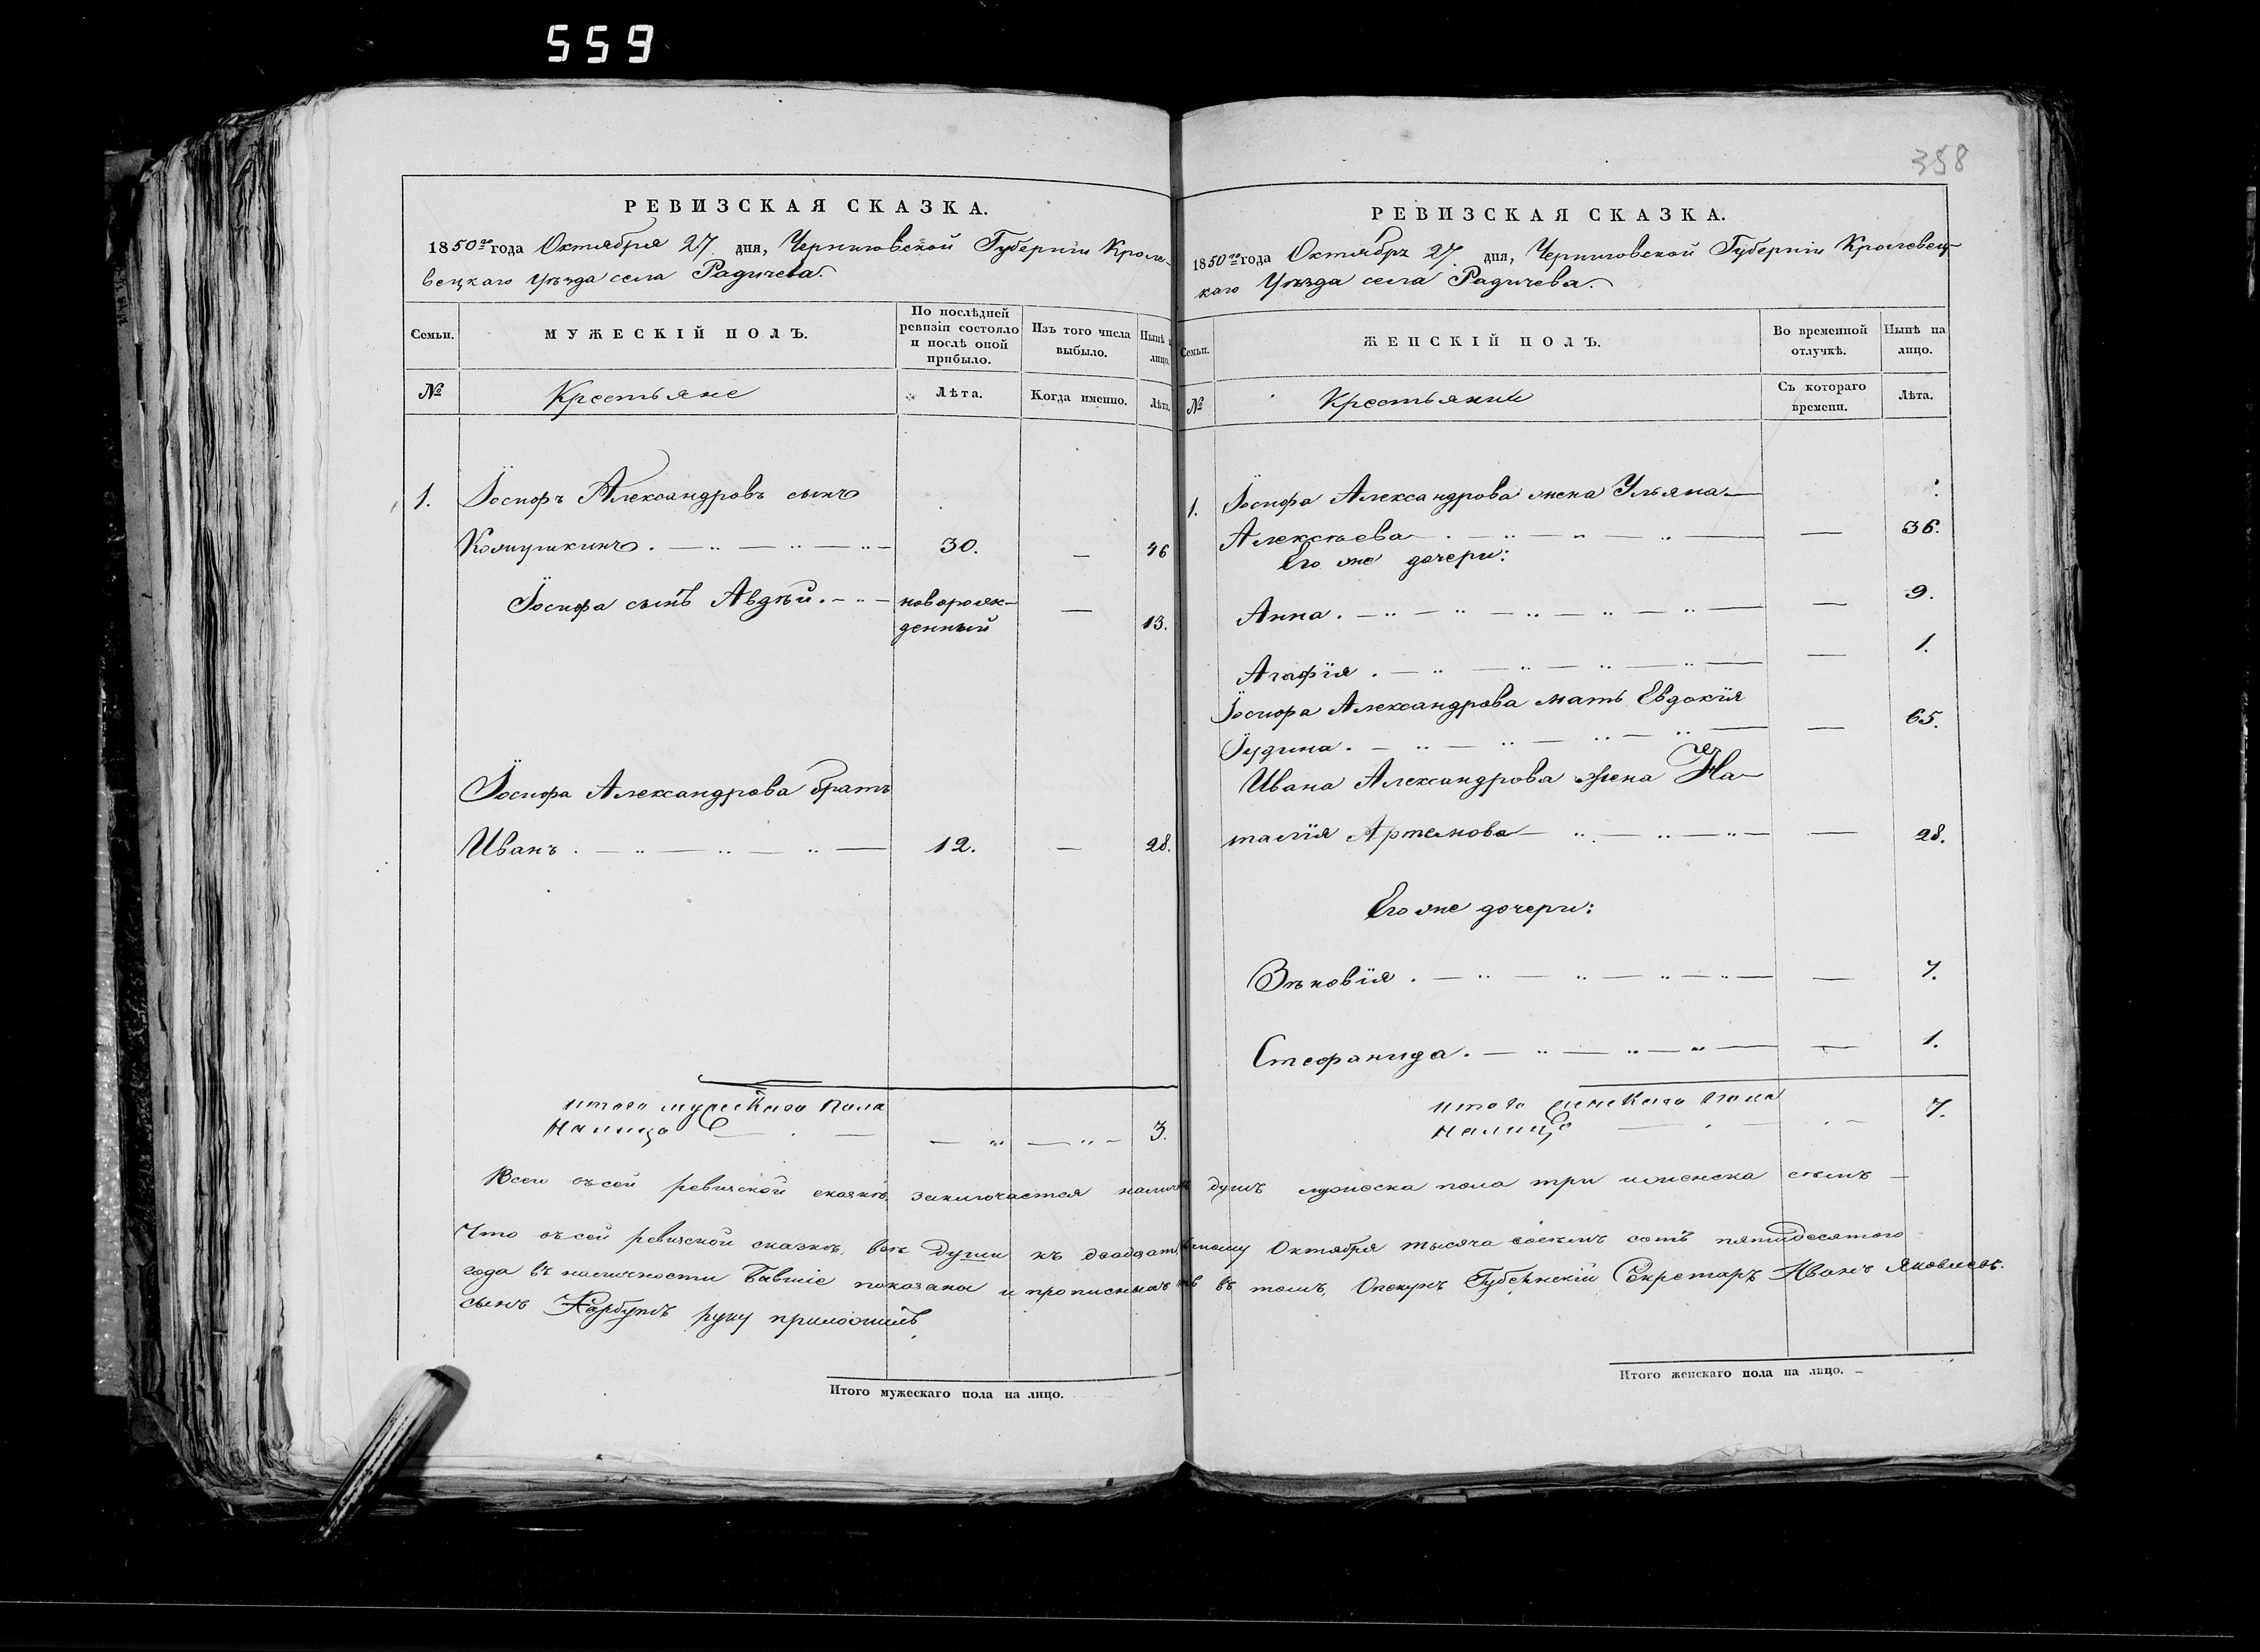 559
358
РЕВИЗСКАЯ СКАЗКА.
1850го года Октября 27 дня, Черниговской Губерніи Кроле-
вецкаго Уѣзда села Радичева.
Семьи.
МУЖЕСКІЙ ПОЛЪ.
По послѣдней ревизіи состояло и послѣ оной прибыло.
Изъ того числа выбыло.
Нынѣ на лицо.
№
Крестьяне
Лѣта.
Когда именно.
Лѣта.
1. Іосифъ Александровъ сынъ
30. — 46
Іосифа сынъ Авдѣй. новорож-
денный — 13.
Іосифа Александрова братъ
Иванъ. 12. — 28.
итого мужескаго пола
налицо — 3.
РЕВИЗСКАЯ СКАЗКА.
1850го года Октябрь 27 дня, Черниговской Губерніи Кролевец-
каго Уѣзда села Радичева.
Семьи.
ЖЕНСКІЙ ПОЛЪ.
Во временной отлучкѣ.
Нынѣ на лицо.
№
Крестьянки
Съ котораго времени.
Лѣта.
1. Іосифа Александрова жена Ульяна
Алексѣева — 36.
Его же дочери:
Анна. — 9.
Агафія. — 1.
Іосифа Александрова мать Евдокія
Іудина. — 65.
Ивана Александрова жена На-
талія Артемова — 28.
Его же дочери:
Зѣновія. — 7.
Стефанида. — 1.
итого женскаго пола
налицо 7.
Всего въ сей ревизской сказкѣ заключается налично душъ мужеска пола три и женска семь —
Что въ сей ревизской сказкѣ, все души къ двадцать седьмому Октября тысяча восемь сотъ пятидесятого
года въ наличности бывшіе показаны и прописныхъ нѣтъ въ томъ, Опекунъ Губернскій Секретарь Иванъ Яковлевъ
сынъ руку приложилъ
Итого мужескаго пола на лицо.
Итого женскаго пола на лицо.